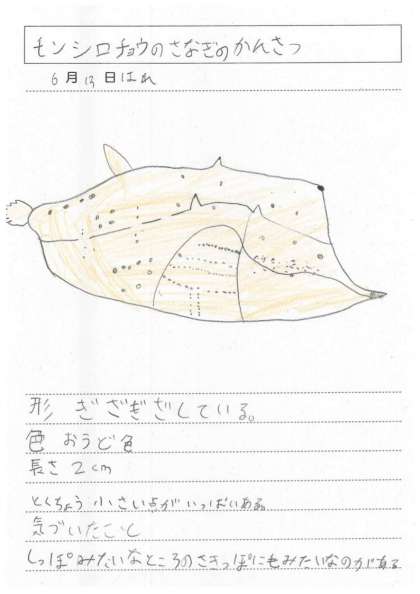 モンシロチョウのさなぎのかんさつ
6月13日はれ
形 ぎざぎざしている。
色 おうど色
長さ 2cm
とくちょう 小さい点がいっぱいある。
気づいたこと
しっぽみたいなところのさきっぽに毛みたいなのがある